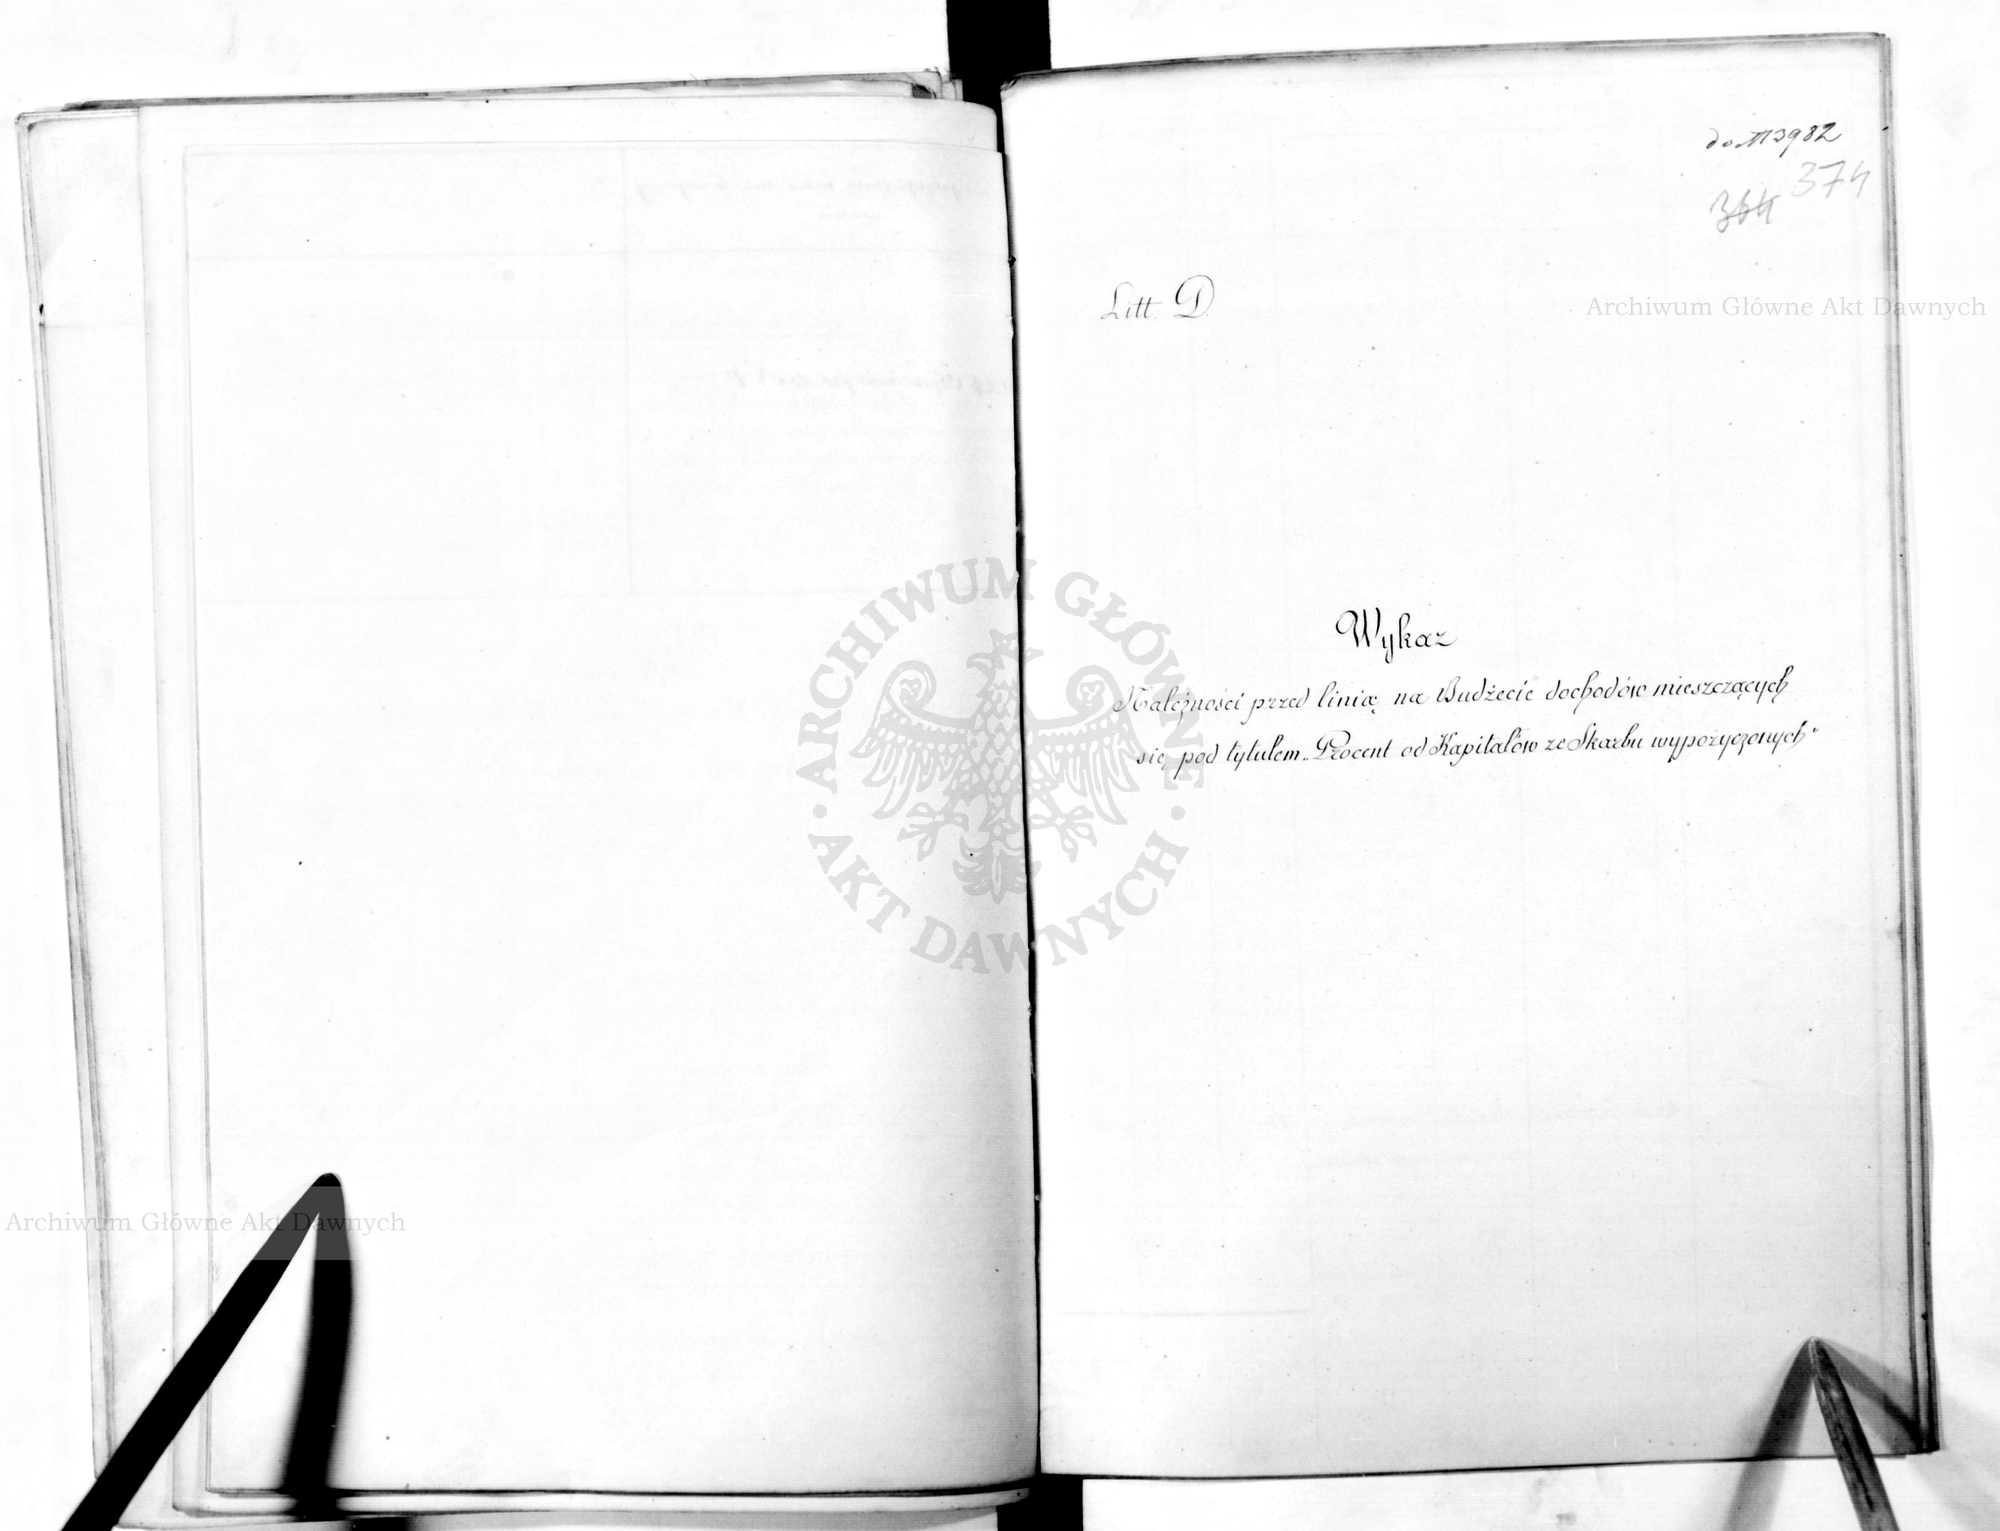 do N 3982
374
364
Litt. D.
Archiwum Główne Akt Dawnych
Wykaz
Należności przed linią na Budżecie dochodów mieszczących
się pod tytułem „Procent od Kapitałów ze Skarbu wypożyczonych"
ARCHIWUM GŁÓWNE
AKT DAWNYCH
Archiwum Główne Akt Dawnych